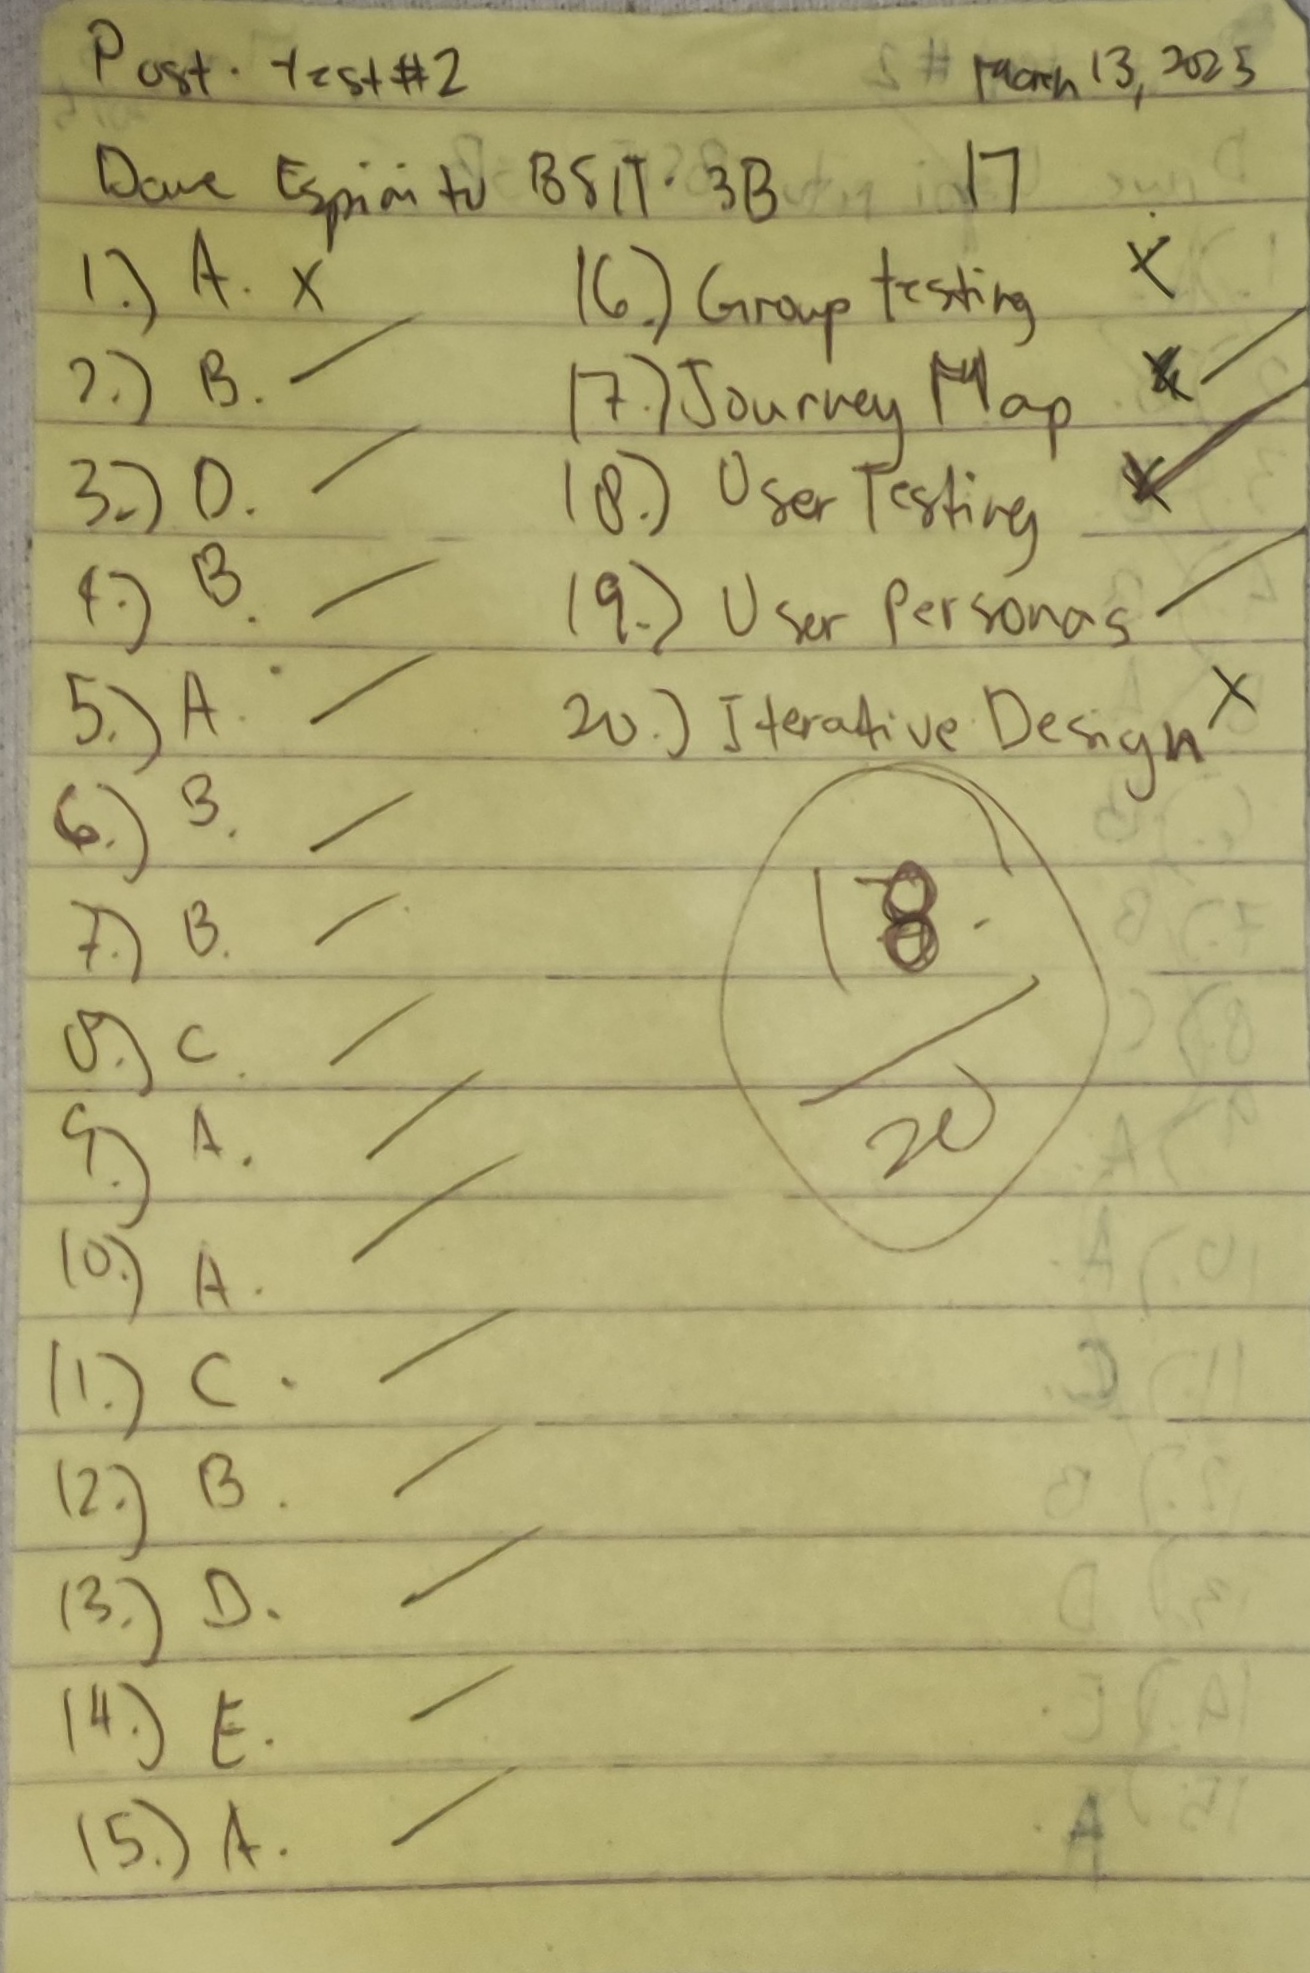 Post-test #2 March 13, 2025
Dave Espiritu BSIT-3B 17
1.) A. x
2.) B.
3.) D.
4.) B.
5.) A.
6.) B.
7.) B.
8.) C.
9.) A.
10.) A.
11.) C.
12.) B.
13.) D.
14.) E.
15.) A.
16.) Group testing x
17.) Journey Map
18.) User Testing
19.) User Personas
20.) Iterative Design x
18
20